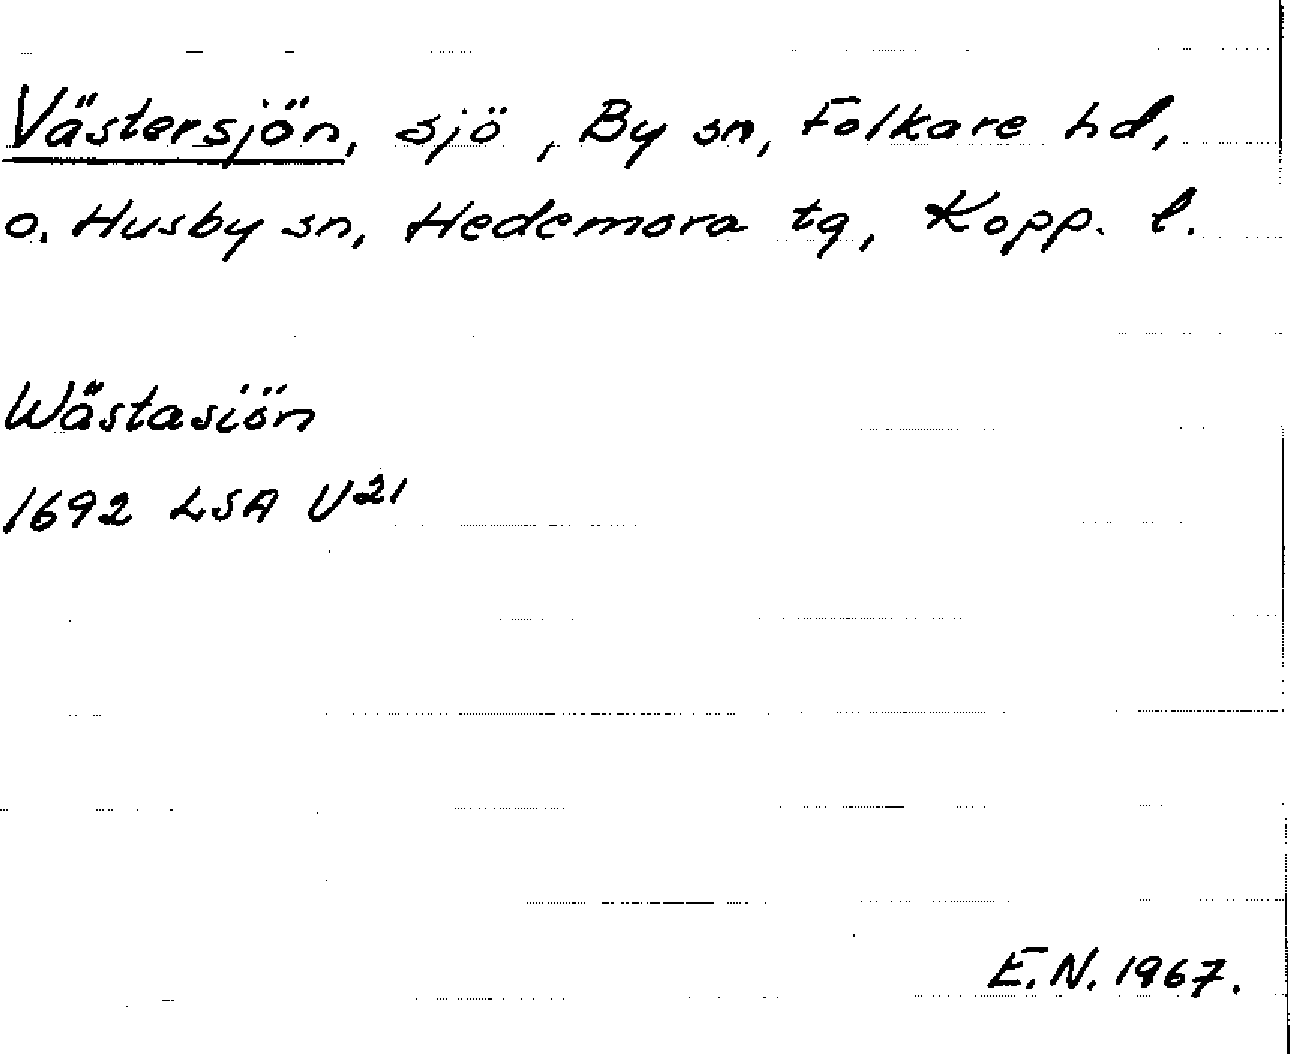 Västersjön, sjö, By sn, Folkare hd,
o. Husby sn, Hedemora tg, Kopp. l.
Wästasiön
1692 LSA U21
E.N. 1967.